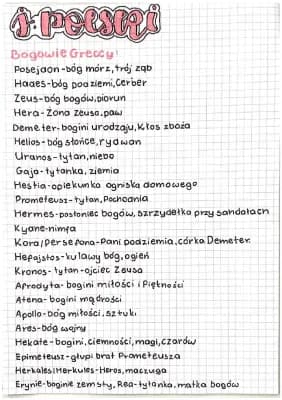 j. polski
Bogowie Greccy!
Posejdon-bóg mórz, trój ząb
Hades-bóg podziemi, Cerber
Zeus-bóg bogów, piorun
Hera-Żona Zeusa, paw
Demeter-bogini urodzaju, Kłos zboża
Helios-bóg słońce, rydwan
Uranos-tytan, niebo
Gaja-tytanka, ziemia
Hestia-opiekunka ogniska domowego
Prometeusz-tytan, Pochodnia
Hermes-posłaniec bogów, szrzydełka przy sandałach
Kyane-nimfa
Kora/Persefona-Pani podziemia, córka Demeter.
Hefajstos-kulawy bóg, ogień
Kronos-tytan-ojciec Zeusa
Afrodyta-bogini miłości i Piękności
Atena-bogini mądrości
Apollo-bóg miłości, sztuki
Ares-bóg wojny
Hekate-bogini, ciemności, magi, czarów
Epimeteusz-głupi brat Prometeusza
Herkales/Herkules-Heros, maczuga
Erynie-boginie zemsty, Rea-tytanka, matka bogów